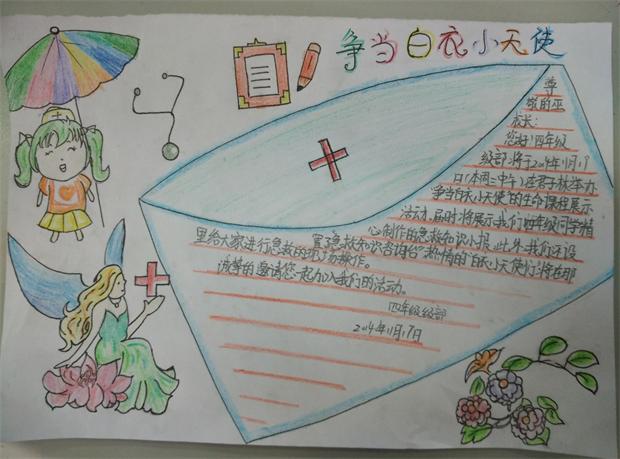 争当白衣小天使
尊
敬的巫
校长:
您好!四年级
级部将于2014年11月19
日(本周三中午)在君子林举办
“争当白衣小天使”的生命课程展示
活动。届时将展示我们四年级同学精
心制作的急救知识小报。此外,我们还设
置急救知识咨询台,热情的“白衣小天使们”将在那
里给大家进行急救的现场操作。
诚挚的邀请您一起加入我们的活动。
四年级级部
2014年11月17日